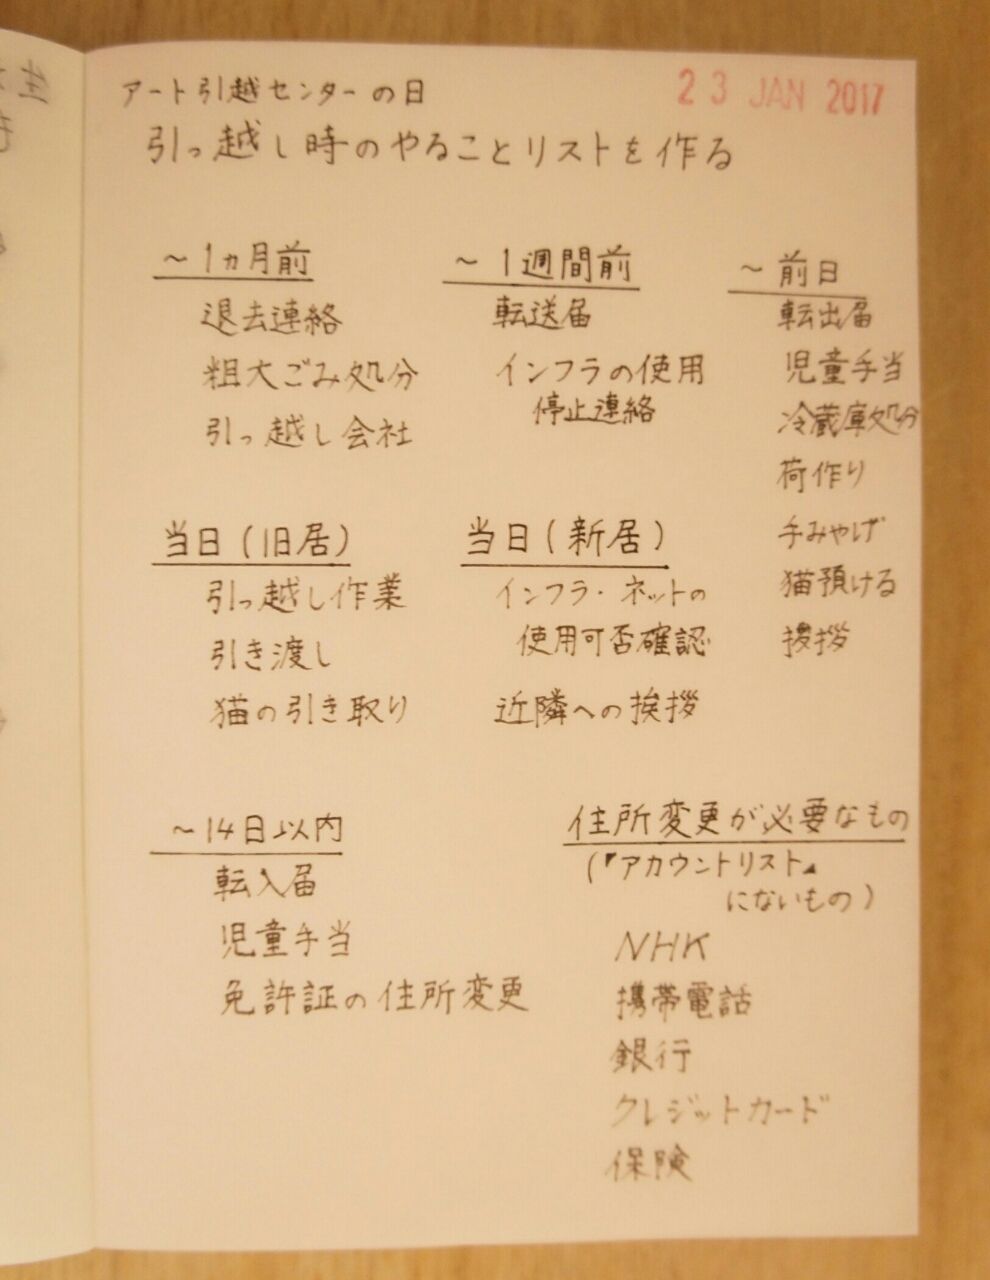 アート引越センターの日
23 JAN 2017
引っ越し時のやることリストを作る
～1ヵ月前
退去連絡
粗大ごみ処分
引っ越し会社
～1週間前
転送届
インフラの使用
停止連絡
～前日
転出届
児童手当
冷蔵庫処分
荷作り
手みやげ
猫預ける
挨拶
当日(旧居)
引っ越し作業
引き渡し
猫の引き取り
当日(新居)
インフラ・ネットの
使用可否確認
近隣への挨拶
～14日以内
転入届
児童手当
免許証の住所変更
住所変更が必要なもの
(『アカウントリスト』
にないもの)
NHK
携帯電話
銀行
クレジットカード
保険